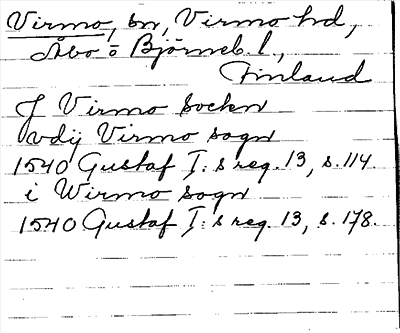 Virmo, sn, Virmo hd,
Åbo o Björneb. l.,
Finland
J Virmo Sockn
vdij Virmo sogn
1540 Gustaf I:s reg. 13, s. 114.
i Wirmo sogn
1540 Gustaf I:s reg. 13, s. 178.